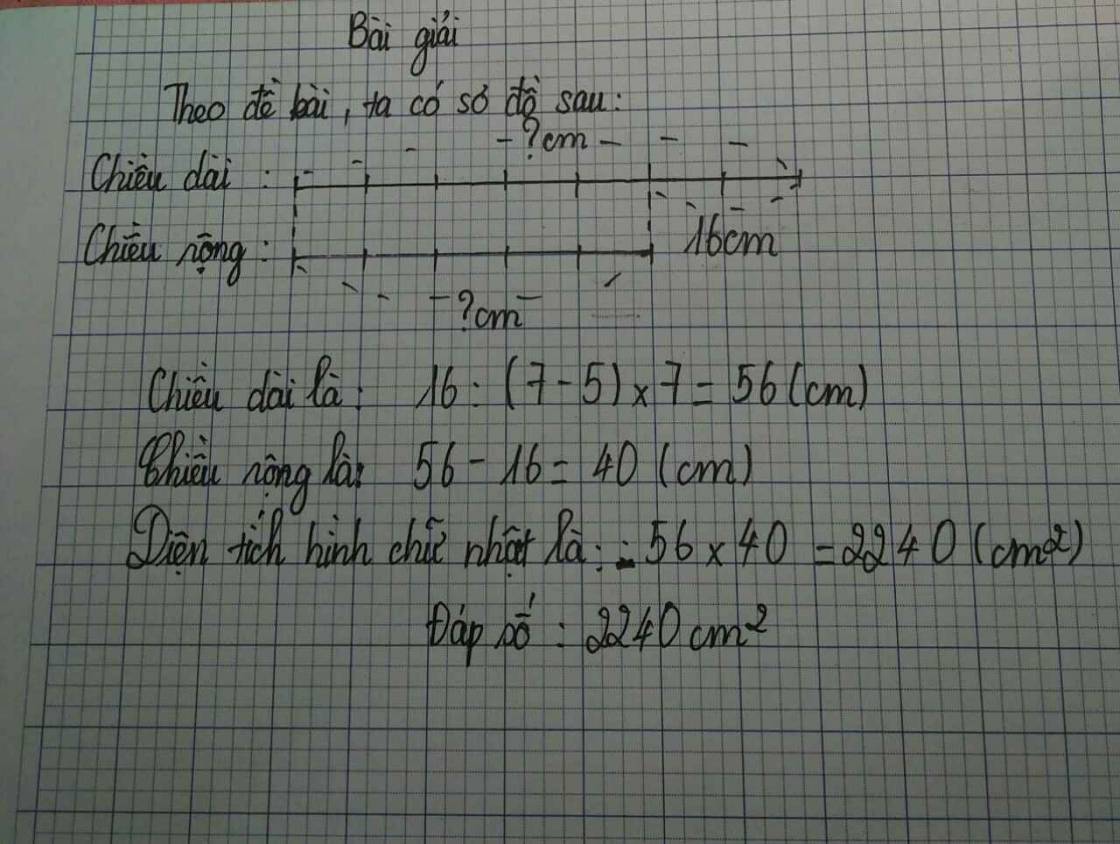 Bài giải
Theo đề bài, ta có sơ đồ sau:
?cm
Chiều dài :
16cm
Chiều rộng :
?cm
Chiều dài là: 16 : (7 - 5) x 7 = 56 (cm)
Chiều rộng là: 56 - 16 = 40 (cm)
Diện tích hình chữ nhật là: 56 x 40 = 2240 (cm²)
Đáp số : 2240 cm²